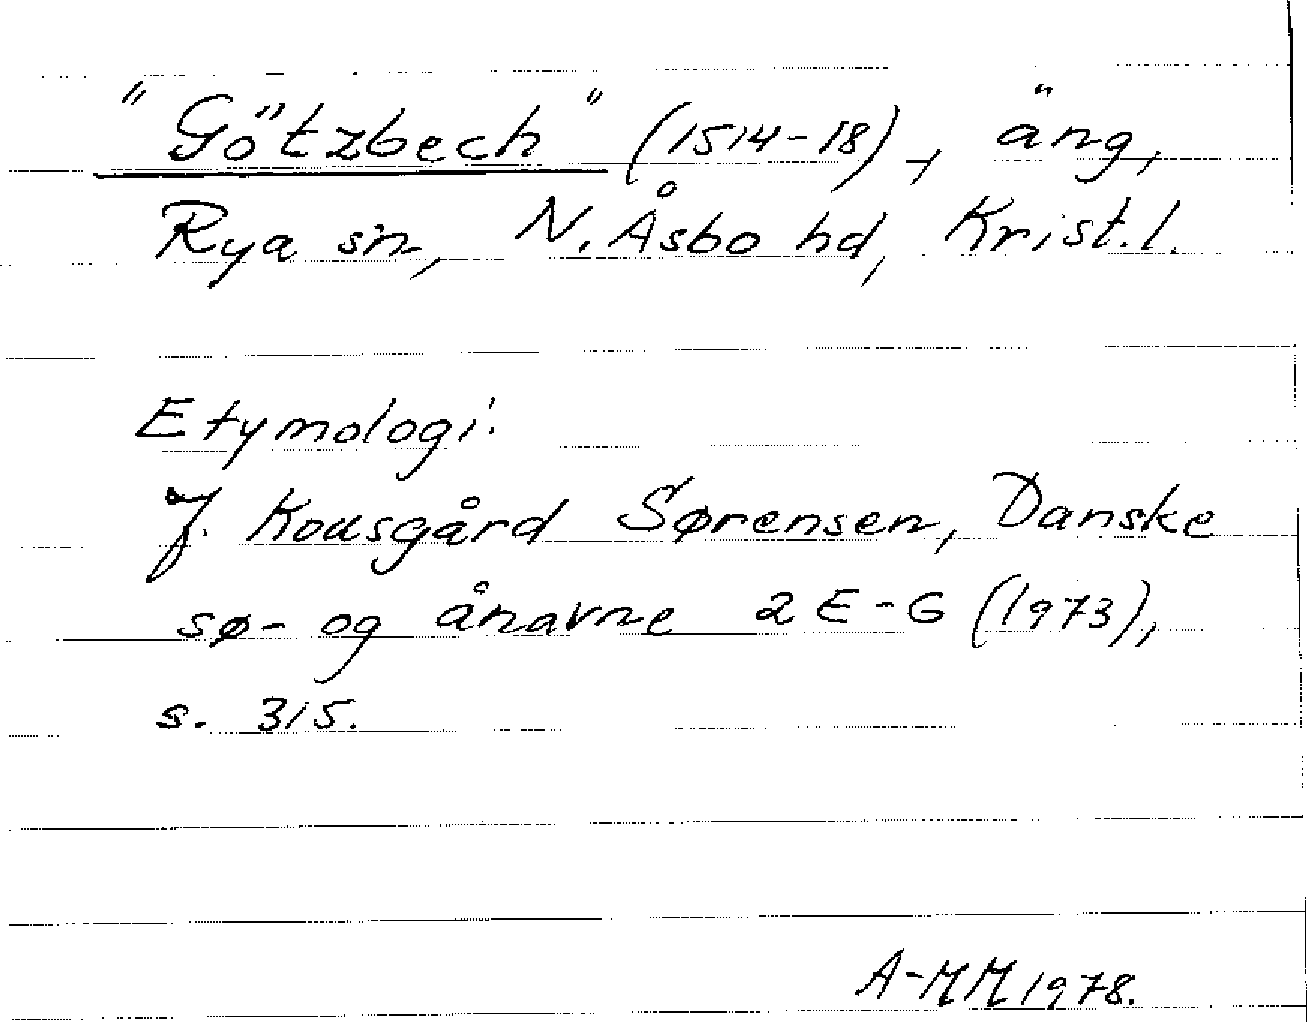 "Götzbech" (1514-18), äng,
Rya sn, N. Åsbo hd, Krist. l.
Etymologi:
J. Kousgård Sørensen, Danske
sø- og ånavne 2 E-G (1973),
s. 315.
A-MM 1978.